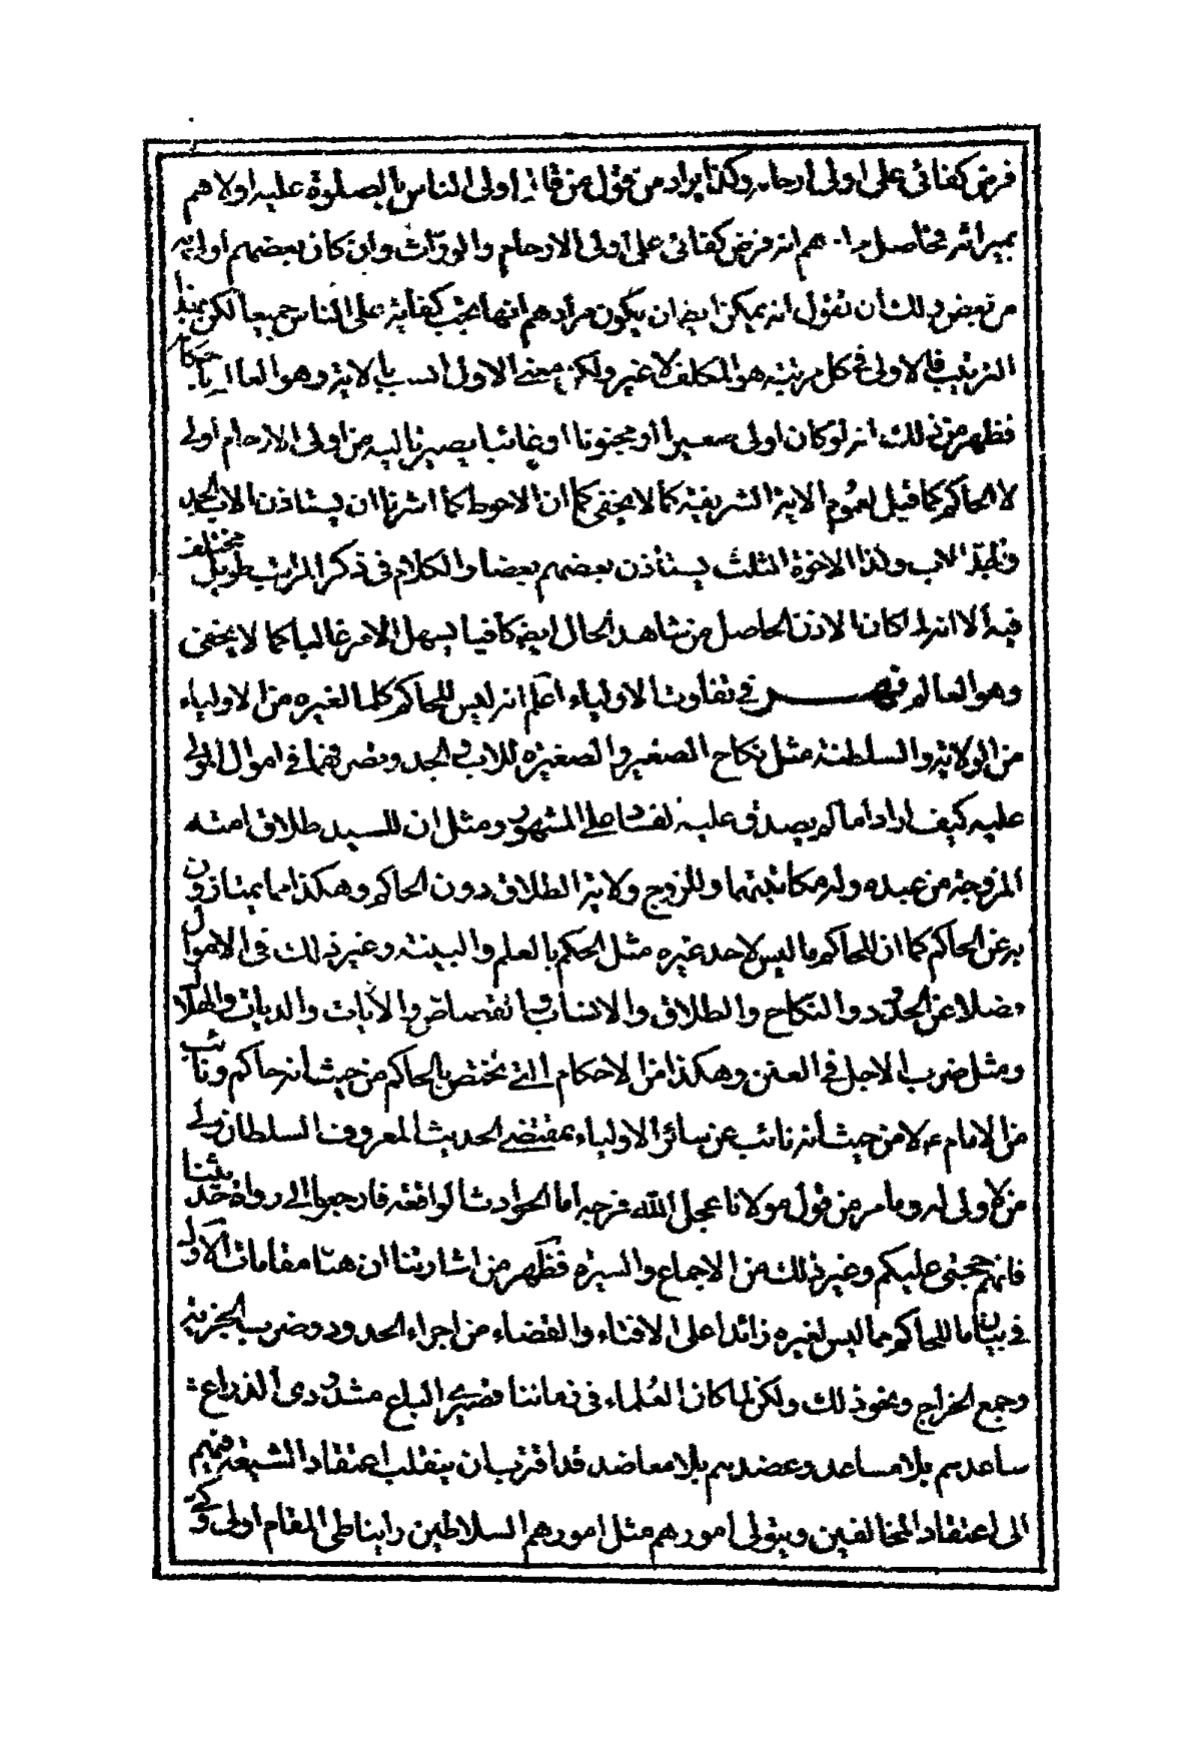 فرض كفائى على اولى ارحامه وكذا يراد من قول من قال اولى الناس بالصلوة عليه اولاهم
بميراثه فحاصل مرادهم انه فرض كفائى على اولى الارحام والوراث وان كان بعضهم اولى به
من بعض ذلك ان نقول انه يمكن ايضا ان يكون مرادهم انها يجب كفاية على الناس جميعا لكن بهذا
الترتيب فالاولى فى كل مرتبة هو المكلف لا غير ولكن معنى الاولى انسب بالاية وهو العالم
فظهر من ذلك انه لو كان اولى صغيرا او مجنونا او غائبا يصير ثانيه من اولى الارحام اولى
لا الحاكم كما قيل لعموم الاية الشريفة كما لا يخفى كما ان الاحوط كما اشرنا ان يستاذن الاب الجد
والجد الاب ولذا الاخوة الثلث يستأذن بعضهم بعضا والكلام فى ذكر المراتب طويل مختلف
فيه الا انه لما كان الاذن الحاصل من شاهد الحال ايضا كافيا يسهل الامر غالبا كما لا يخفى
وهو العالم فى تفاوت الاولياء اعلم انه ليس للحاكم كلما لغيره من الاولياء
من الولاية والسلطنة مثل نكاح الصغير والصغيرة للاب والجد وتصرفهما فى اموال المولى
عليه كيف ارادا ما لم يصدق عليه فساد على المشهور ومثل ان للسيد طلاق امته
المزوجة من عبده وله مكاتبتهما وللزوج ولاية الطلاق دون الحاكم وهكذا مما يمتازون
به عن الحاكم كما ان للحاكم ما ليس لاحد غيره مثل الحكم بالعلم والبينة وغير ذلك فى الاموال
فضلا عن الحدود والنكاح والطلاق والانساب والقصاص والديات والهلال
ومثل ضرب الاجل فى العنن وهكذا من الاحكام التى تختص بالحاكم من حيث انه حاكم ونائب
من الامام ع لا من حيث انه نائب عن سائر الاولياء بمقتضى الحديث المعروف السلطان ولى
من لا ولى له وما مر من قول مولانا عجل الله فرجه اما الحوادث الواقعة فارجعوا الى رواة حديثنا
فانهم حجتى عليكم وغير ذلك من الاجماع والسيرة فظهر من اشارتنا ان هنا مقامات الاول
فى بيان ما للحاكم مما ليس لغيره زائدا على الافتاء والقضاء من اجراء الحدود وضرب الجزية
وجمع الخراج ونحو ذلك ولكن لما كان العلماء فى زماننا قصيرى الباع مشلودى الذراع
ساعدهم بلا مساعد وعضدهم بلا معاضد قد اقترب ان ينقلب اعتقاد الشيعة فيهم
الى اعتقاد المخالفين ويتولى امورهم مثل امورهم السلاطين راينا طى المقام اولى